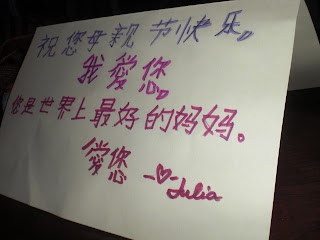 祝您母亲节快乐。
我愛您。
您是世界上最好的妈妈。
愛您
-♡- Julia